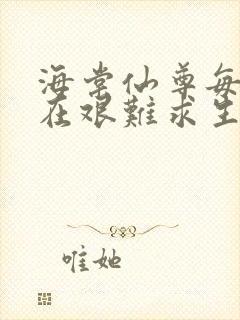 海棠仙尊每
在艰難求生
唯她